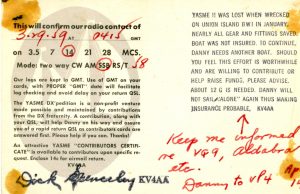 This will confirm our radio contact of
3.29.59 at 0415 GMT
on 3.5 7 14 21 28 MCS.
Mode: two way CW AM SSB RS/T 58
Our logs are kept in GMT. Use of GMT on your
cards, with PROPER "GMT" date will facilitate
log checking and avoid delay of your return QSL.
The YASME DX'pedition is a non-profit venture
made possible and maintained by contributions
from the DX fraternity. A contribution, along with
your QSL, will help Danny on his way and assure
you of a rapid return QSL as contributors cards are
answered first. Please help if you can. Thanks!
An attractive YASME "CONTRIBUTORS CERTIFI-
CATE" is available to contributors upon specific re-
quest. Enclose 14c for airmail return.
KV4AA
Dick Spenceley KV4AA
YASME II WAS LOST WHEN WRECKED
ON UNION ISLAND BWI IN JANUARY,
NEARLY ALL GEAR AND FITTINGS SAVED
BOAT WAS NOT INSURED. TO CONTINUE,
DANNY NEEDS ANOTHER BOAT. SHOULD
YOU FEEL THIS EFFORT IS WORTHWHILE
AND ARE WILLING TO CONTRIBUTE OR
HELP RAISE FUND, PLEASE ADVISE.
ABOUT 12 G IS NEEDED. DANNY WILL
NOT SAIL ALONE AGAIN THUS MAKING
INSURANCE PROBABLE, KV4AA
Keep me informed
re VQ9, Aldabra
etc.
Danny to VP4